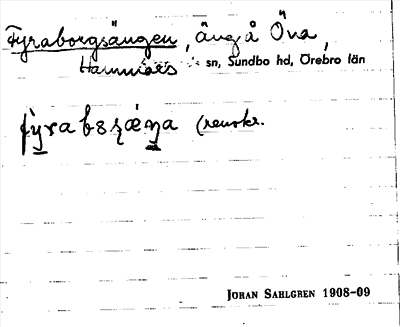 Fyraborgsängen, äng å Öna,
Hammars sn, Sundbo hd, Örebro län
fỳrabsǽŋa (renskr.
JÖRAN SAHLGREN 1908-09